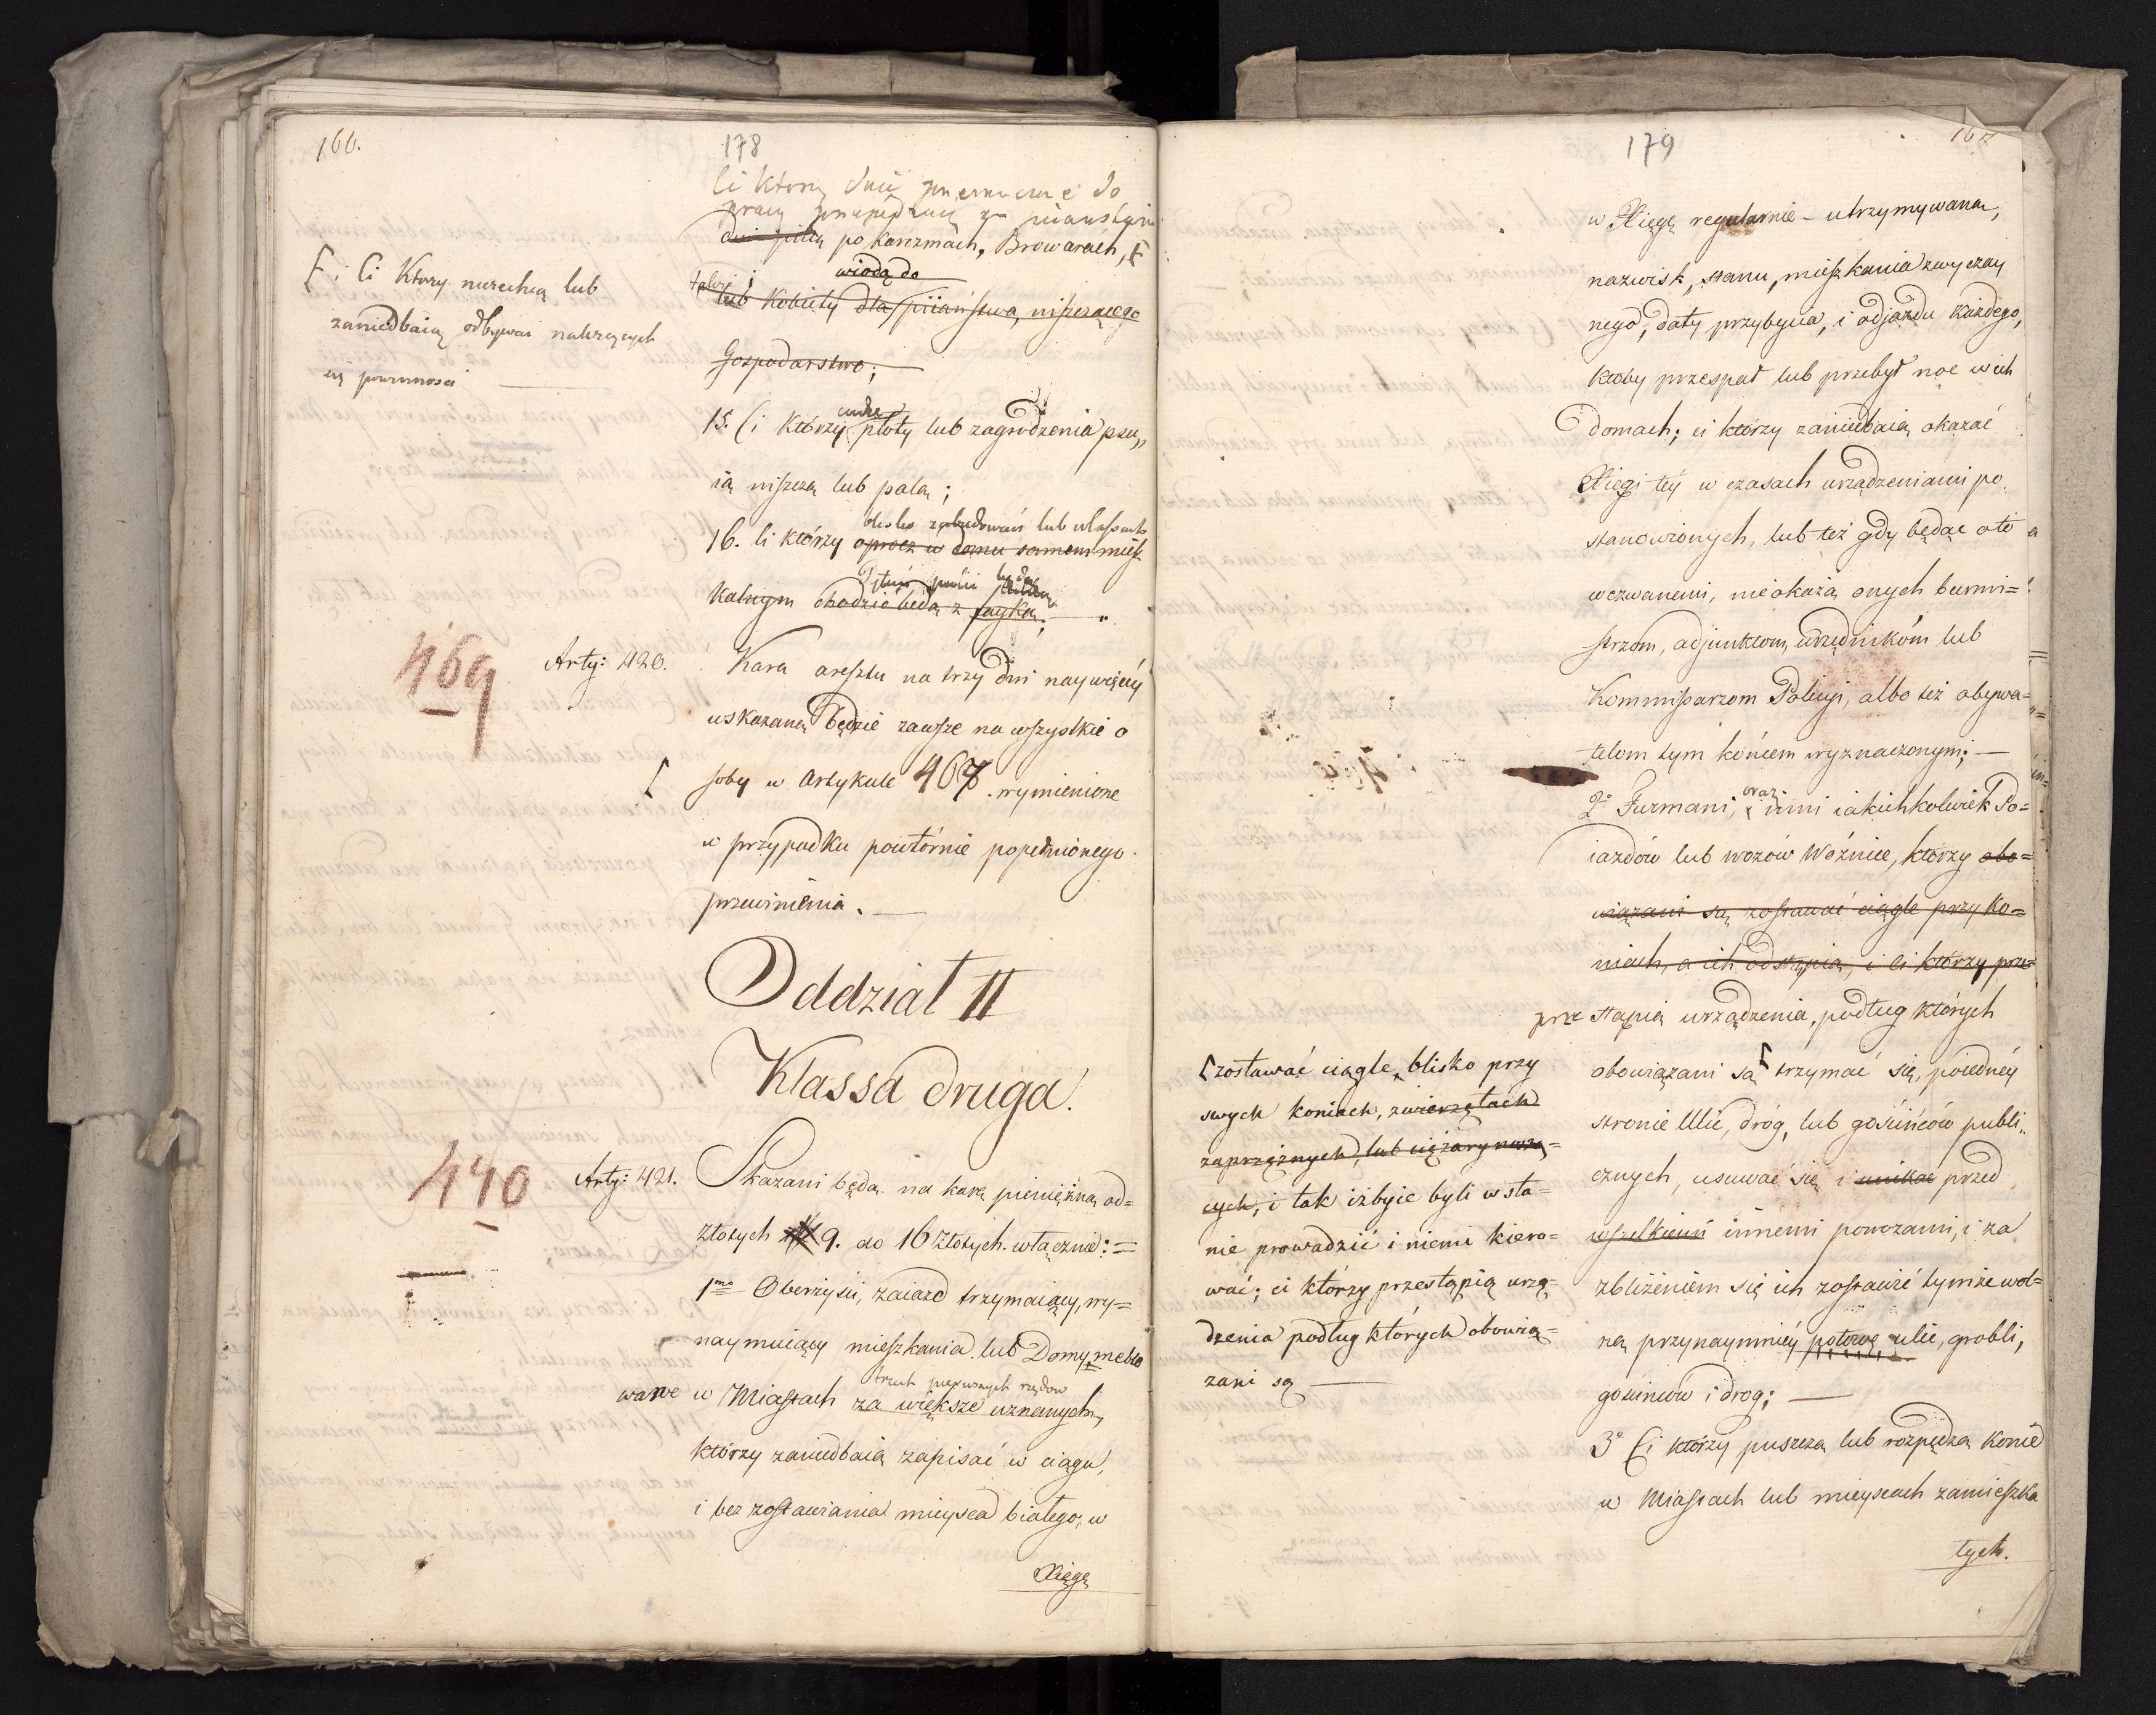 166.
178
Ci którzy dnie przeznaczone do
pracy
dni piią po karczmach, Browarach, F
wiodą do
lub Kobiety dla piiaństwa, niszczącego
Gospodarstwo;
F i Ci Ktorzy niechcą lub
zaniedbaią odbywać należących
się powinnosci
cudze
15. Ci którzy płoty lub zagrodzenia psu„
ią niszczą lub palą;
blisko zabudowań lub
16. Ci którzy oprocz w domu samem miesz
kalnym chodzić będą z fayką.
469
Arty: 420.
Kara aresztu na trzy dni naywięcéy
wskazaną będzie zawsze na wszystkie o
soby w Artykule 467. wymienione
w przypadku powtórnie popełnionego
przewinienia.
Oddział II
Klassa druga.
470
Arty: 421.
Skazani będą na karę pieniężną od=
złotych 9. do 16 złotych. włącznie: =
1mo Oberzyści, zaiazd trzymaiący, wy=
naymuiący mieszkania lub Domy meblo
trzech pierwszych rzędow
wane w Miastach za większe uznanych,
którzy zaniedbaią zapisać w ciągu,
i bez zostawiania mieysca białego, w
Xięgę
179
167
w Xięgę regularnie – utrzymywaną,
nazwisk, stanu, mieszkania zwyczay
nego, daty przybycia, i odjazdu każdego,
ktoby przespał lub przebył noc w ich
domach; ci którzy zaniedbaią okazać
Xięgi téy w czasach urządzeniami po
stanowionych, lub też gdy będąc o to
wezwanemi, nie okażą onych burmi=
strzom, adjunktom, urzędnikóm lub
Kommissarzom Policyi, albo też obywa=
telom tym końcem wyznaczonym; —
oraz
2o Furmani, i inni iakichkolwiek Po=
iazdów lub wozów Woźnice, którzy obo=
wiązani są zostawać ciągle przy ko=
niach, a ich odstąpią, i ci którzy prze=
prze stąpią urządzenia, podług których
obowiązani są F trzymać się, po iednéy
stronie Ulic, dróg, lub gościńców publi„
cznych, usuwać się i unikać przed
wszelkiemi innemi powozami, i za
zbliżeniem się ich zostawić tymże wol=
ną przynaymniéy połowę ulic, grobli,
goscincow i drog; —
3o Ci którzy puszczą lub rozpędzą konie
w Miastach lub mieyscach zamieszka
tych.
F zostawać ciągle blisko przy
swych koniach, zwierzętach
zaprzężnych, lub ciężary noszą=
cych, i tak iżbyie byli w sta=
nie prowadzić i niemi kiero=
wać; ci którzy przestąpią urzą=
dzenia podług których obowią=
zani są —